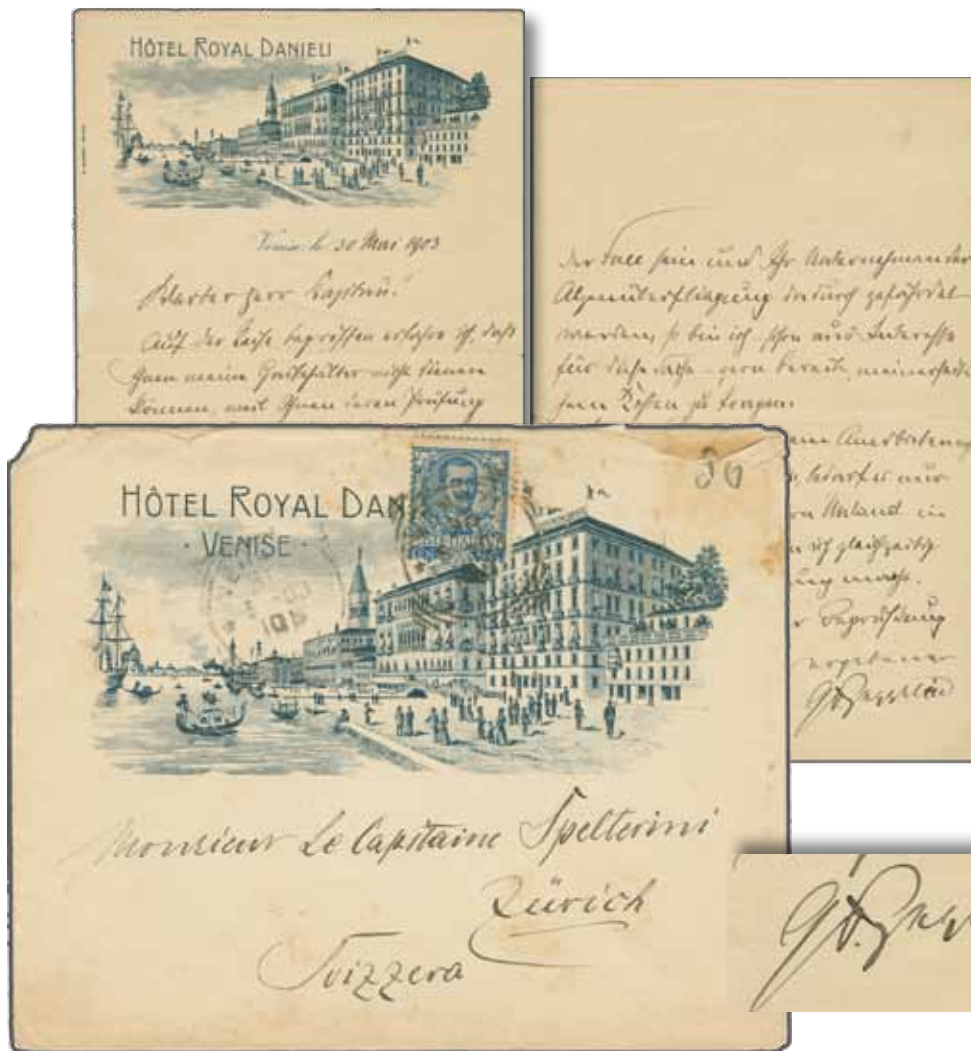 HÔTEL ROYAL DANIELI
le 30 Mai 1903
Werter Herr Kapitän!
Auf der Reise begriffen erfahre ich, daß
Ihnen meine Gasbehälter nicht dienen
können, weil Ihnen deren Prüfung
der Fall sein und Ihr Unternehmen der
Alpenüberfliegung dadurch gefährdet
werden, so bin ich schon aus Interesse
für die Sache gern bereit, meinerseits
Kosten zu tragen.
bedarf es nur
ich gleichzeitig
mache.
Begrüßung
ergebener
GvZeppelin
HÔTEL ROYAL DAN
· VENISE ·
Monsieur Le Capitaine Spelterini
Zürich
Svizzera